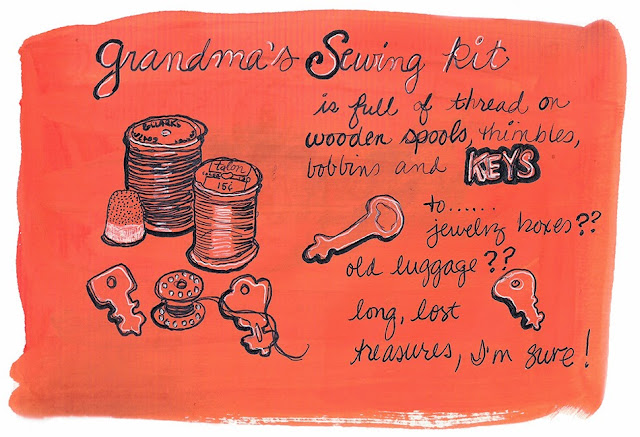 Grandma's Sewing kit
is full of thread on
wooden spools, thimbles,
bobbins and KEYS
to......
jewelry boxes??
old luggage??
long, lost
treasures, I'm sure!
talon
15¢